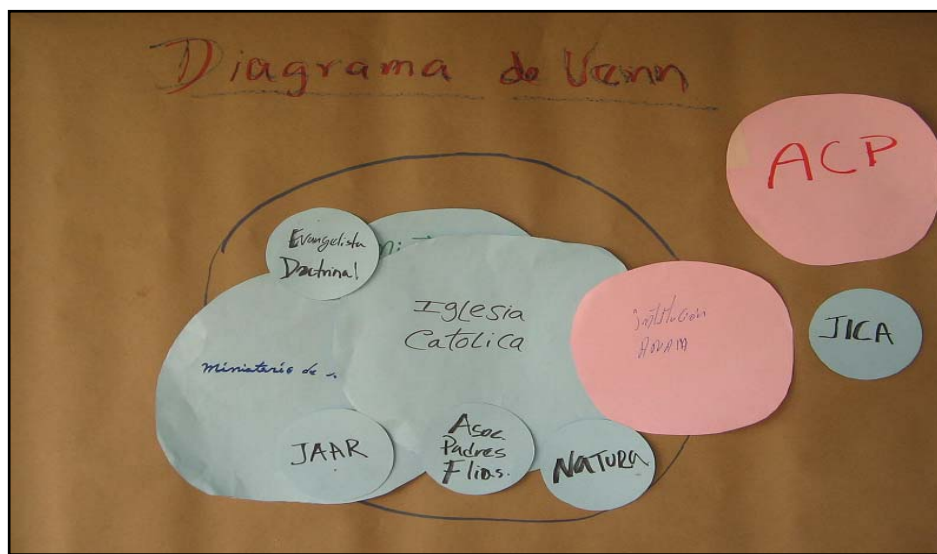 Diagrama de Venn
ACP
Evangelista
Doctrinal
Iglesia
Catolica
Institución
ANAM
JICA
Ministerio de
JAAR
Asoc
Padres
Flias.
NATURA